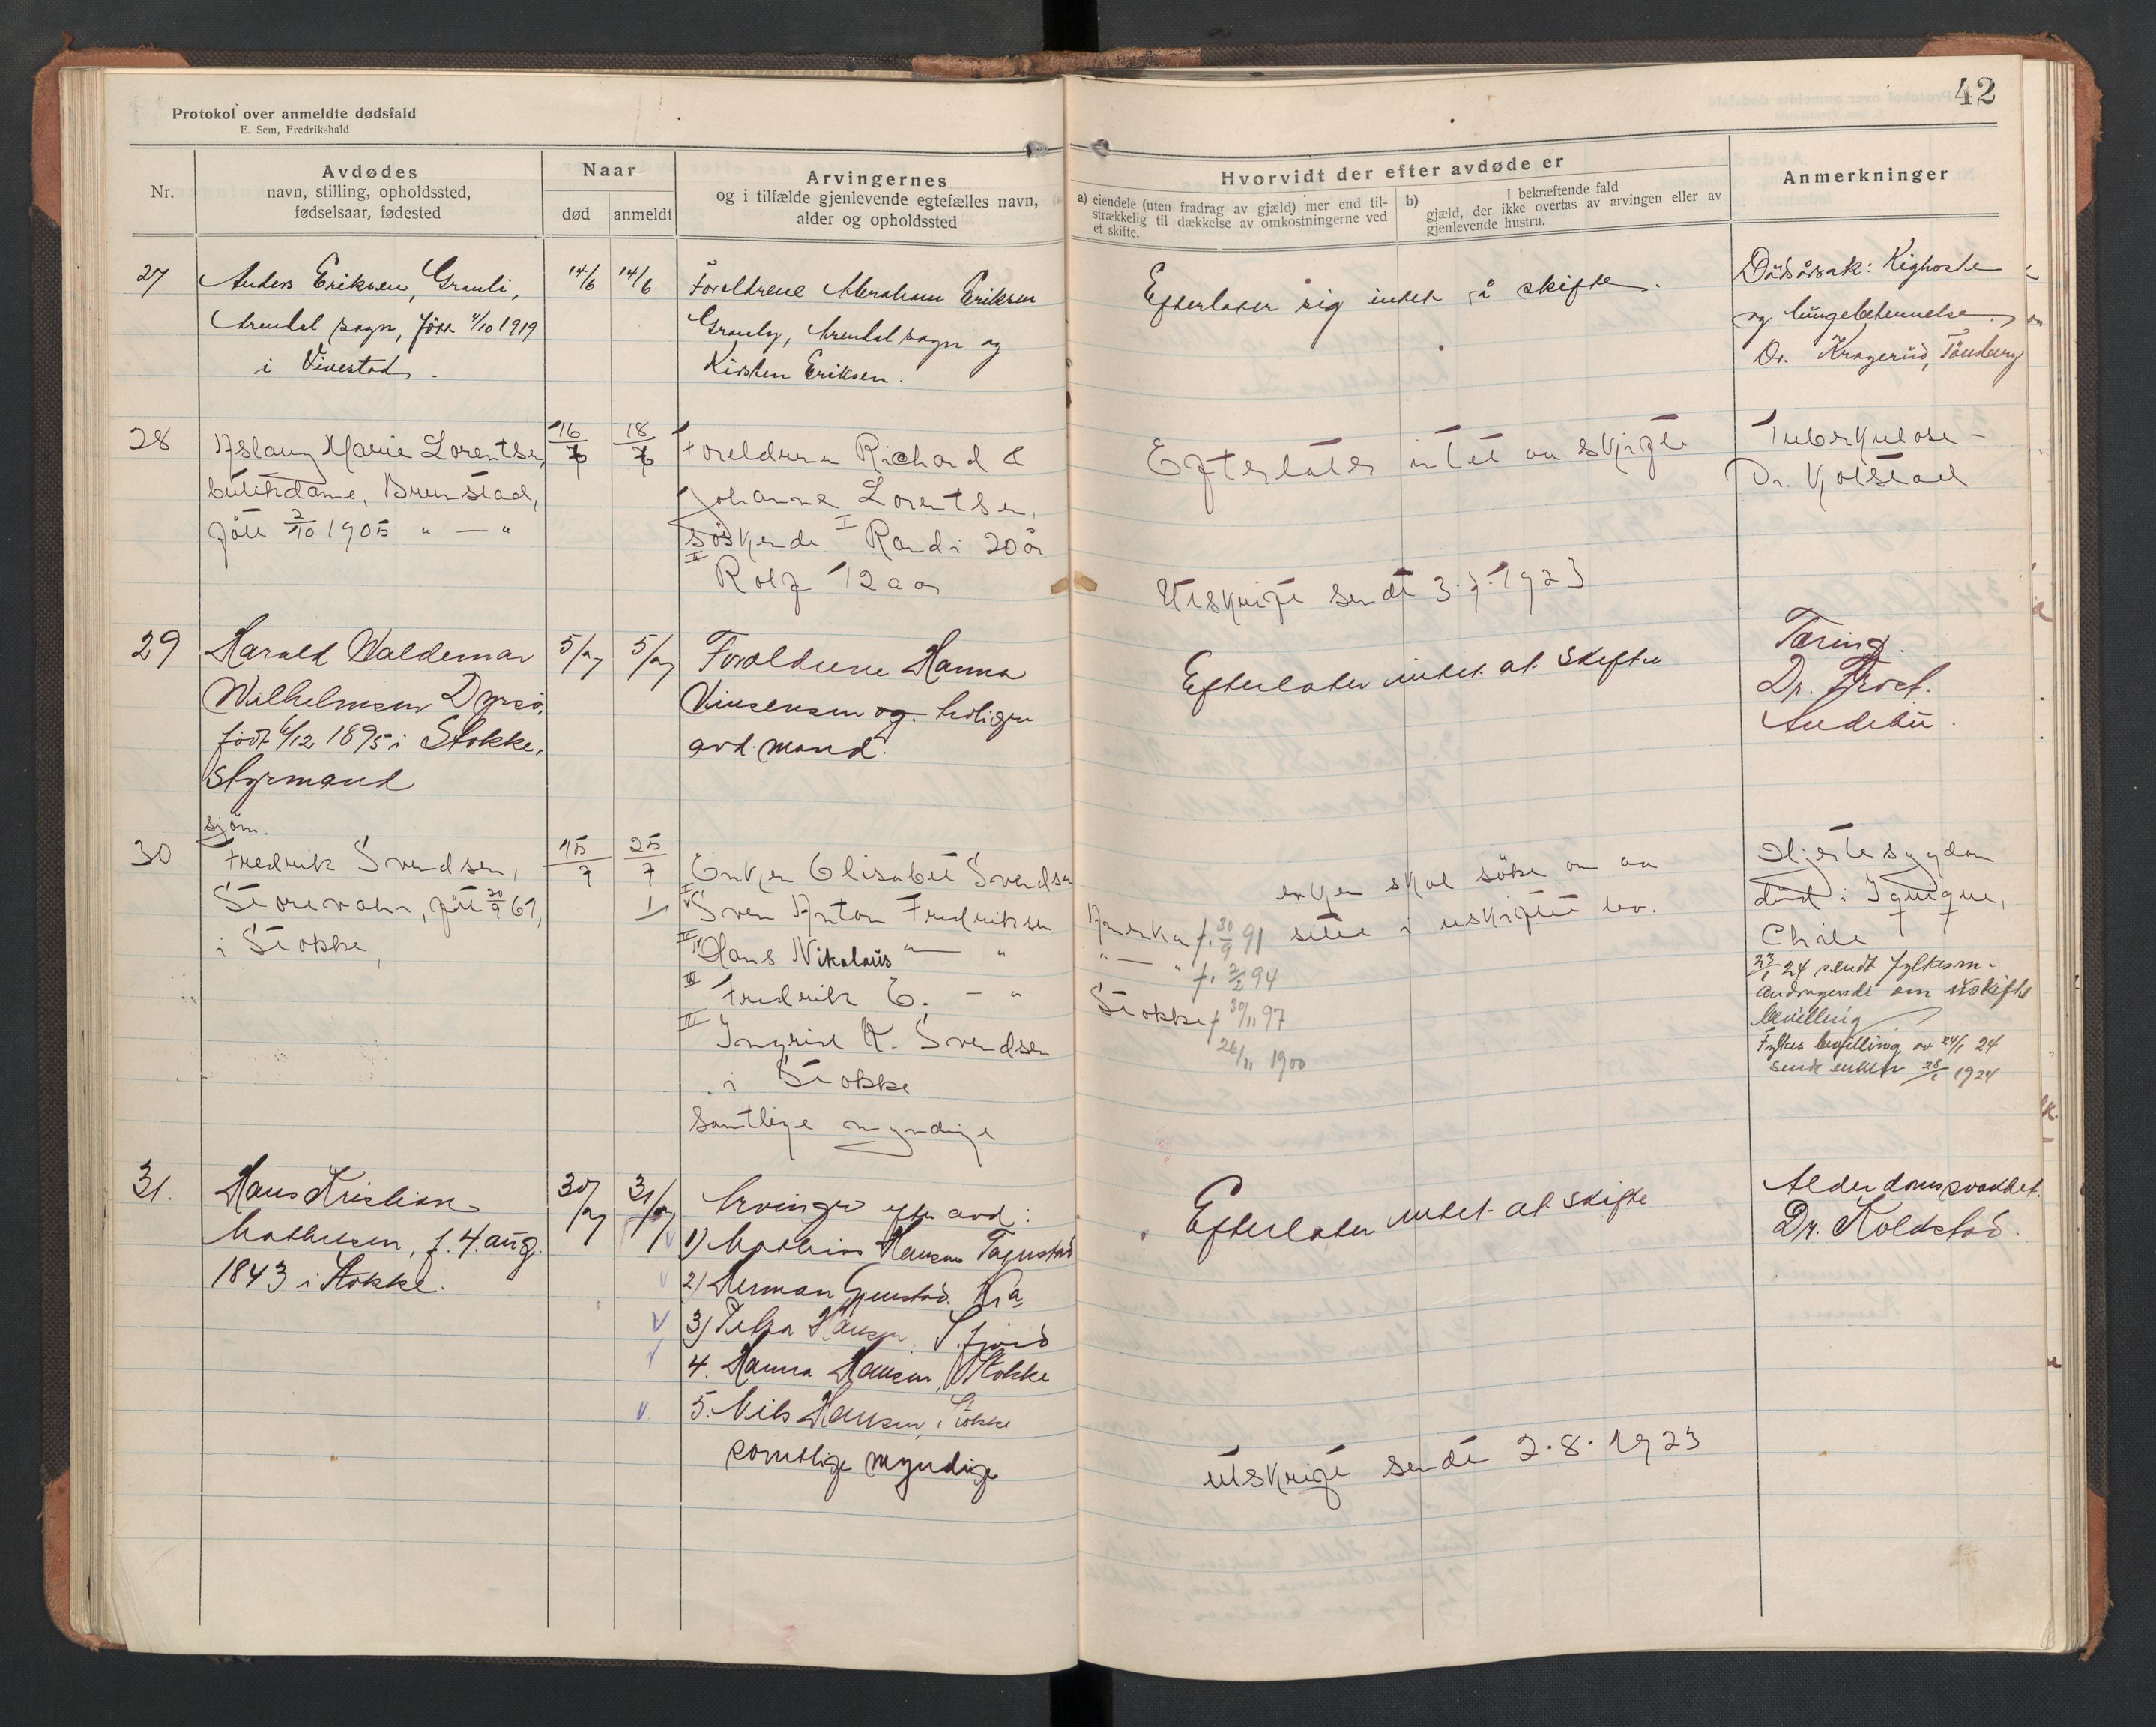 Protokol over anmeldte dødsfald
E. Sem, Fredrikshald
42
Nr.
Avdødes
navn, stilling, opholdssted,
fødselsaar, fødested
Naar
død
anmeldt
Arvingernes
og i tilfælde gjenlevende egtefælles navn,
alder og opholdssted
Hvorvidt der efter avdøde er
a) eiendele (uten fradrag av gjæld) mer end til-
strækkelig til dækkelse av omkostningerne ved
et skifte.
b) I bekræftende fald
gjæld, der ikke overtas av arvingen eller av
gjenlevende hustru.
Anmerkninger
27
Anders Eriksen, Grauli,
Arendal sogn, født 4/10 1919
i Vivestad.
14/6
14/6
Foreldrene Abraham Eriksen
Grauly, Arendal sogn og
Kirsten Eriksen.
Efterlater sig intet å skifte.
Dödsårsak: Kighoste
og lungebetennelse.
Dr. Kragerud, Tönsberg
28
Aslaug Marie Lorentsen,
butikdame, Brunstad,
født 2/10 1905 " — "
16/6
18/6
Foreldrene Richard &
Johanne Lorentsen,
søskende I Randi 20 år
II Rolf 12 aar
Efterlater intet aa skifte
Utskrift sendt 3.7.1923
Tuberkulose -
Dr. Kolstad
29
Harald Valdemar
Wilhelmsen Dyrsö,
født 6/12 1895 i Stokke,
Styrmand
5/7
5/7
Foreldrene Hanna
Vinsensen og tidligere
avd. mand.
Efterlater intet at skifte
Tæring.
Dr. Frost.
Andebu.
30
sjøm.
Fredrik Svendsen,
Storevahr, født 20/9 67,
i Stokke,
15/7
25/7
Enken Elisabet Svendsen
I Sven Anton Fredriksen
II Hans Nikolaus — "
III Fredrik E. — "
III Ingrid K. Svendsen
i Stokke
Samtlige myndige
Amerka f. 30/9 91
" — " f. 2/2 94
Stokke f 30/11 97
26/11 1900
enken skal söke om aa
sitte i uskiftet bo.
Hjertesygdom
död i Iquique,
Chile
23/1 24 sendt fylkesm.
andragende om uskifte
bevilling
Fylkes bevilling av 24/1 24
sendt enken 28/1 1924
31.
Hans Kristian
Mathisen, f. 4. aug.
1843 i Stokke.
30/7
31/7
Arvinger efter avd:
1) Mathias Hansen Fagerstad
2) Herman Gjenstad. Kr.a
3) Petra Hansen S.fjord
4. Hanna Hansen, Stokke
5. Nils Hansen, Stokke
samtlige myndige
Efterlater intet at skifte
Utskrift sendt 2.8.1923
Alderdomssvakhet.
Dr. Koldstad.